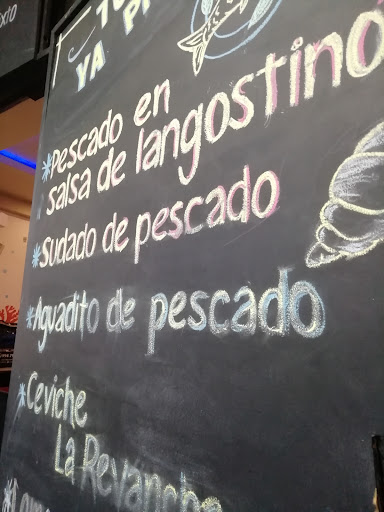 YA
*Pescado en
salsa de langostino
*Sudado de pescado
*Aguadito de pescado
*Ceviche
La Revancha